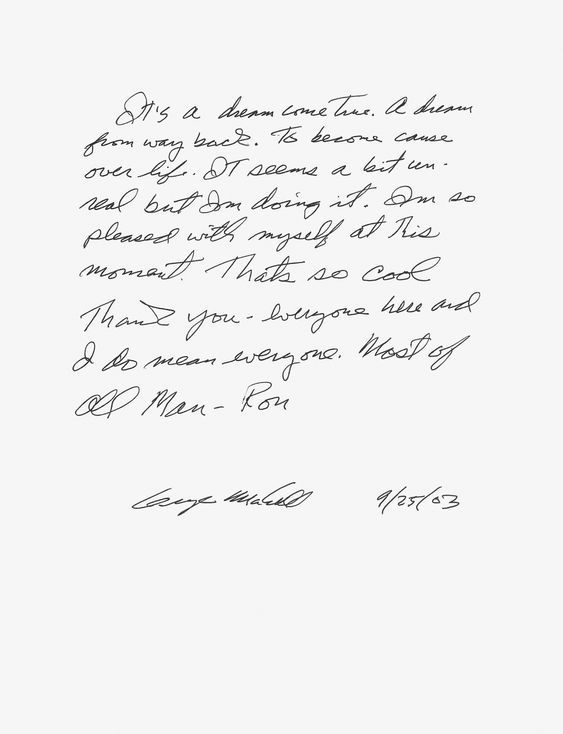 It's a dream come true. A dream
from way back. To become cause
over life. IT seems a bit un-
real but Im doing it. Im so
pleased with myself at This
moment. Thats so cool
Thank you - Everyone here and
I do mean everyone. Most of
all Man - Ron
9/25/03